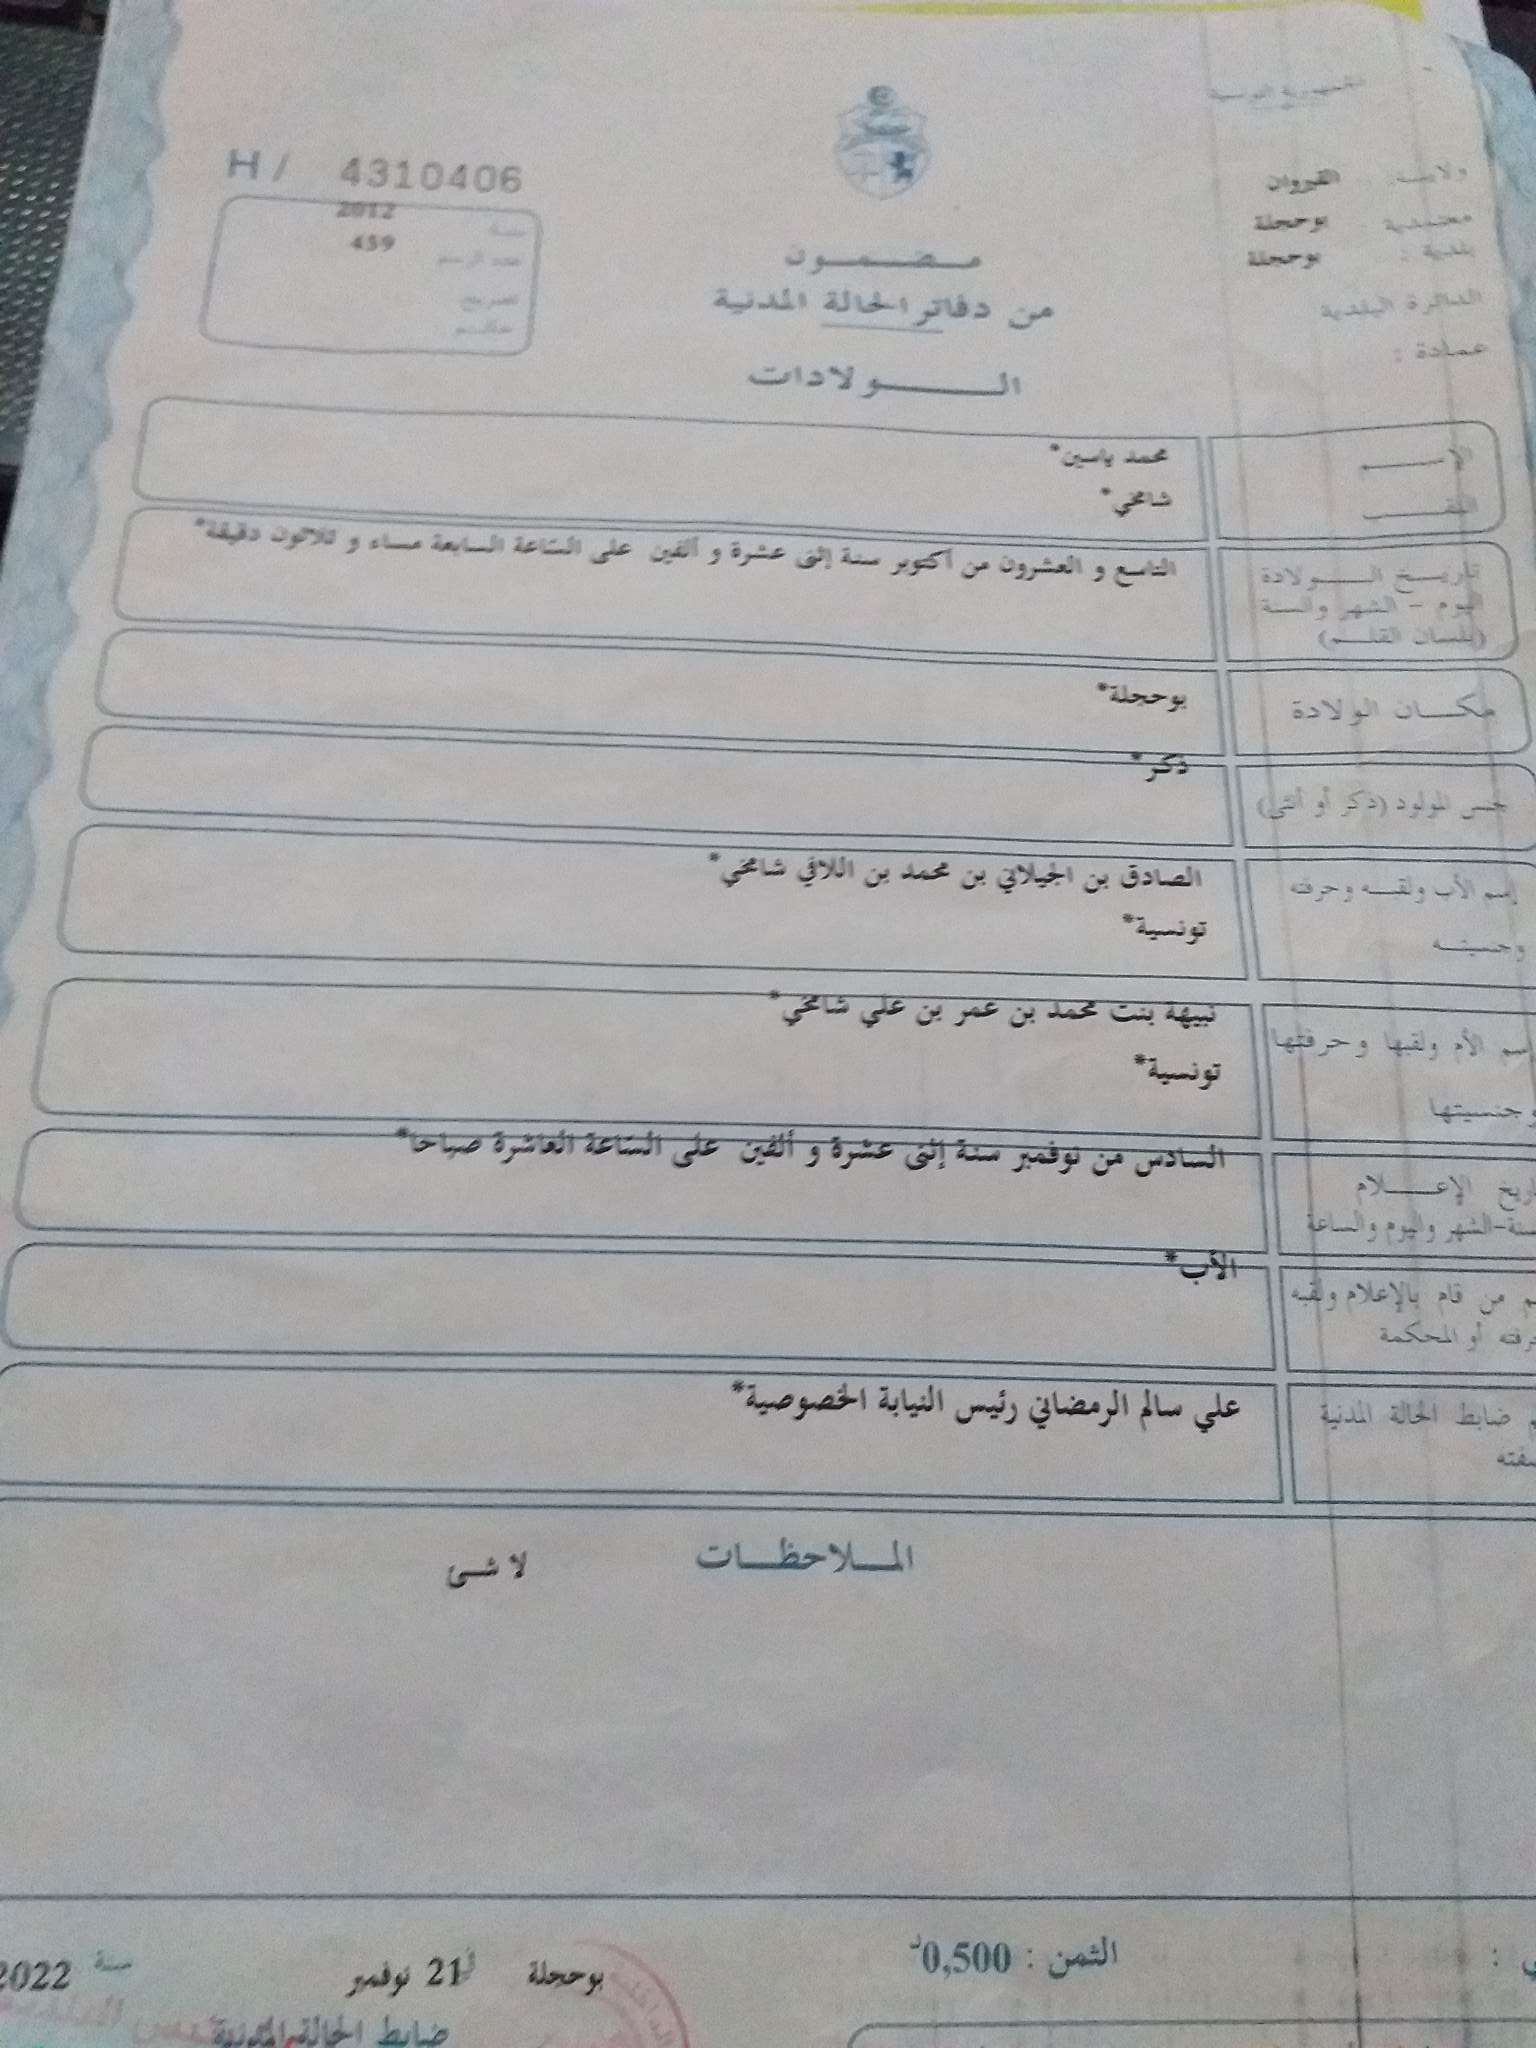 الجمهورية التونسية
ولايــة : القيروان
معتمدية : بوحجلة
بلدية : بوحجلة
الدائرة البلدية
عمادة :
H / 4310406
سنة 2012
عدد الرسم 459
تصريح
حكــم
مـــضـــمـــون
من دفاتر الحالة المدنية
الـــــولادات
الإســــــم محمد ياسين*
اللقـــب شامخي*
تاريــخ الـــــولادة التاسع و العشرون من أكتوبر سنة إثنى عشرة و ألفين على السّاعة السابعة مساء و ثلاثون دقيقة*
اليوم - الشهر والسنة
(بلسان القلــم)
مكـــان الولادة بوحجلة*
جنس المولود (ذكر أو أنثى) ذكر*
إسم الأب ولقبــه وحرفته الصادق بن الجيلاني بن محمد بن اللافي شامخي*
وجنسيتــه تونسية*
إسم الأم ولقبها وحرفتها نبيهة بنت محمد بن عمر بن علي شامخي*
وجنسيتها تونسية*
تاريخ الإعـــــلام السادس من نوفمبر سنة إثنى عشرة و ألفين على السّاعة العاشرة صباحا*
السنة-الشهر واليوم والساعة
من قام بالإعلام ولقبه الأب*
أو المحكمة
ضابط الحالة المدنية علي سالم الرمضاني رئيس النيابة الخصوصية*
المـــلاحظـــات لا شـئ
الثمن : 0,500د
بوحجلة في 21 نوفمبر سنة 2022
ضابط الحالة المدنية